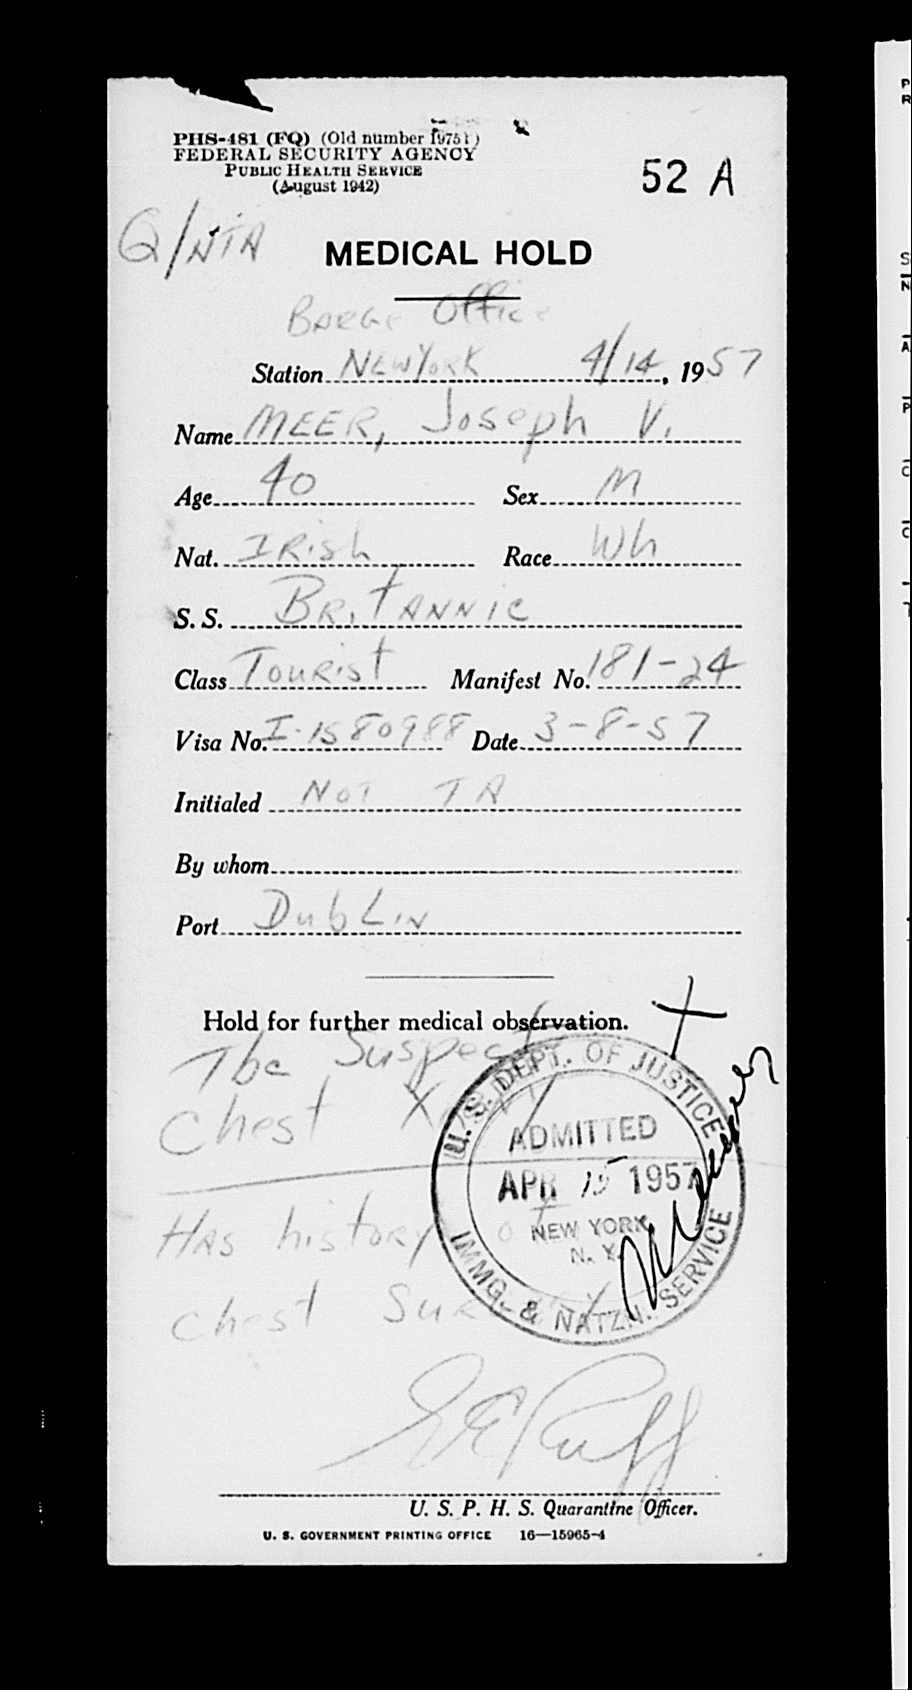 PHS-481 (FQ) (Old number 1975i)
FEDERAL SECURITY AGENCY
PUBLIC HEALTH SERVICE
(August 1942)
52 A
Q/NTA
MEDICAL HOLD
Barge Office
Station New York 4/14, 1957
Name MEER, Joseph V.
Age 40 Sex M
Nat. Irish Race Wh
S. S. Britannic
Class Tourist Manifest No. 181-24
Visa No. I-1580988 Date 3-8-57
Initialed NOT TA
By whom
Port Dublin
Hold for further medical observation.
Tbc Suspect
Chest X-ray
Has history of
chest surgery
U. S. DEPT. OF JUSTICE
ADMITTED
APR 15 1957
NEW YORK,
N. Y.
IMMG. & NATZN. SERVICE
U. S. P. H. S. Quarantine Officer.
U. S. GOVERNMENT PRINTING OFFICE 16—15965-4